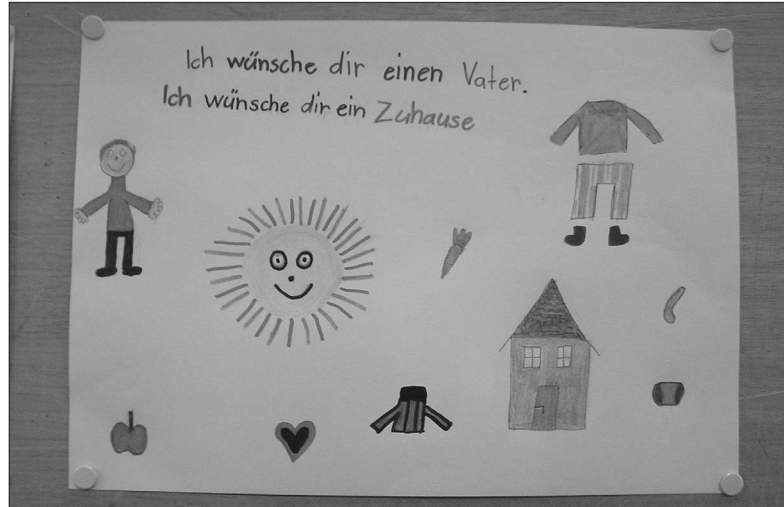 Ich wünsche dir einen Vater.
Ich wünsche dir ein Zuhause